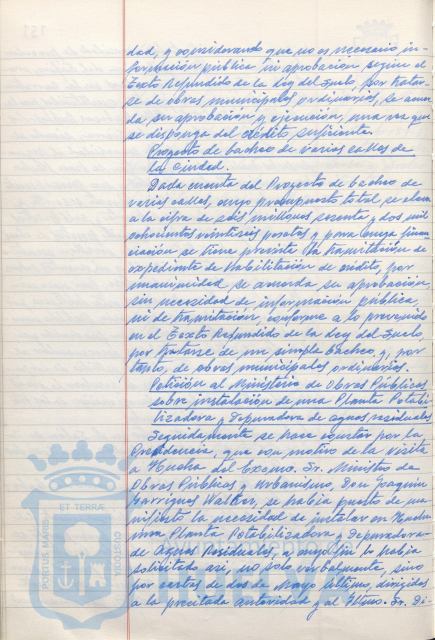 dad, y considerando que no es necesario in-
formación pública ni aprobación según el
Texto Refundido de la Ley del Suelo, por tratar-
se de obras municipales ordinarias, se acuer-
da su aprobación y ejecución, una vez que
se disponga del crédito suficiente.
Proyecto de bacheo de varias calles de
la ciudad.
Dada cuenta del Proyecto de bacheo de
varias calles, cuyo presupuesto total se eleva
a la cifra de seis millones sesenta y dos mil
ochocientas veintiseis pesetas y para cuya finan-
ciación se tiene presente la tramitación de
expediente de habilitación de crédito, por
unanimidad se acuerda su aprobación,
sin necesidad de información pública,
ni de tramitación, conforme a lo prevenido
en el Texto Refundido de la Ley del Suelo,
por tratarse de un simple bacheo y, por
tanto, de obras municipales ordinarias.
Petición al Ministerio de Obras Públicas
sobre instalación de una Planta Potabi-
lizadora y Depuradora de aguas residuales
Seguidamente se hace constar por la
Presidencia, que con motivo de la visita
a Huelva del Excmo. Sr. Ministro de
Obras Públicas y Urbanismo, Don Joaquín
Garrigues Walker, se había puesto de ma-
nifiesto la necesidad de instalar en Huelva
una Planta Potabilizadora y Depuradora
de Aguas Residuales, a cuyo fin lo había
solicitado así, no solo verbalmente, sino
por cartas de dos de Mayo último, dirigidas
a la precitada autoridad y al Iltmo. Sr. Di-
PORTUS MARIS
ET TERRAE
CUSTODIA